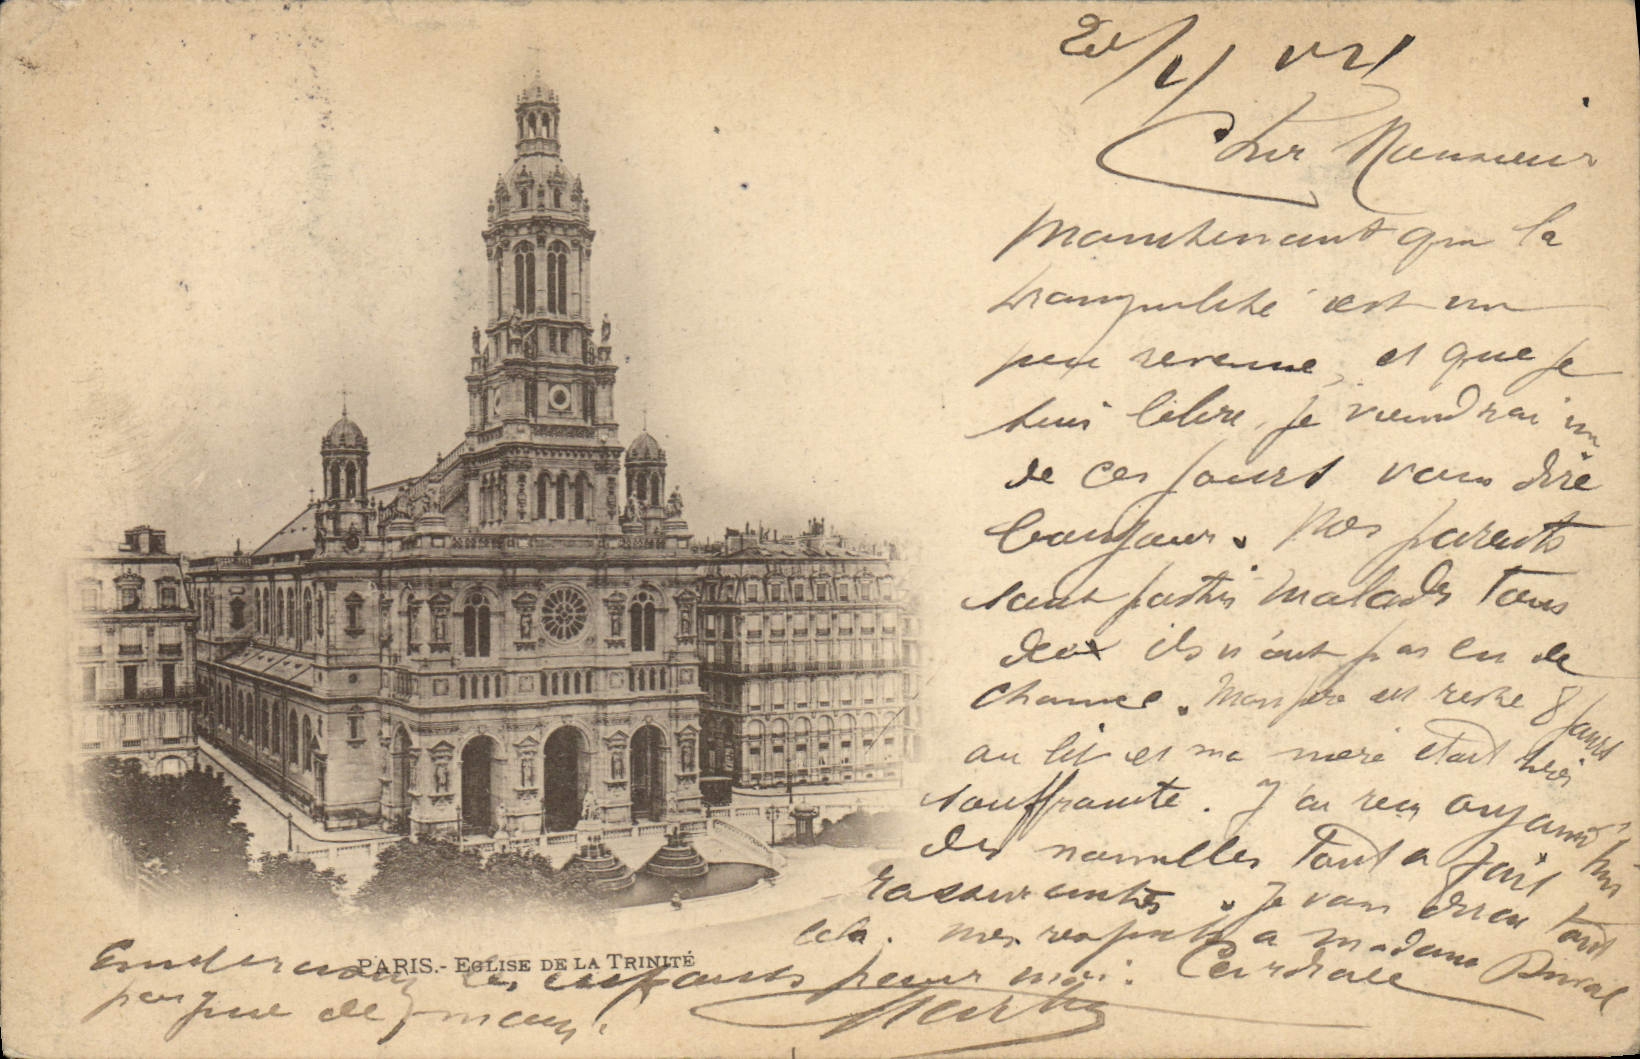 Cher Monsieur
Maintenant que la
tranquilité est un
peu revenue, et que je
suis libre, je viendrai un
de ces jours vous dire
bonjour. Mes parents
sont partis malades tous
deux ils n'ont pas eu de
chance. Mon père est resté 8 jours
au lit et ma mère était très
souffrante. J'ai reçu
des nouvelles tout a fait
rassurantes. Je vous dirai tout
cela. mes respects a madame
Embrassez les enfants pour moi. Cordiale
PARIS.- EGLISE DE LA TRINITÉ